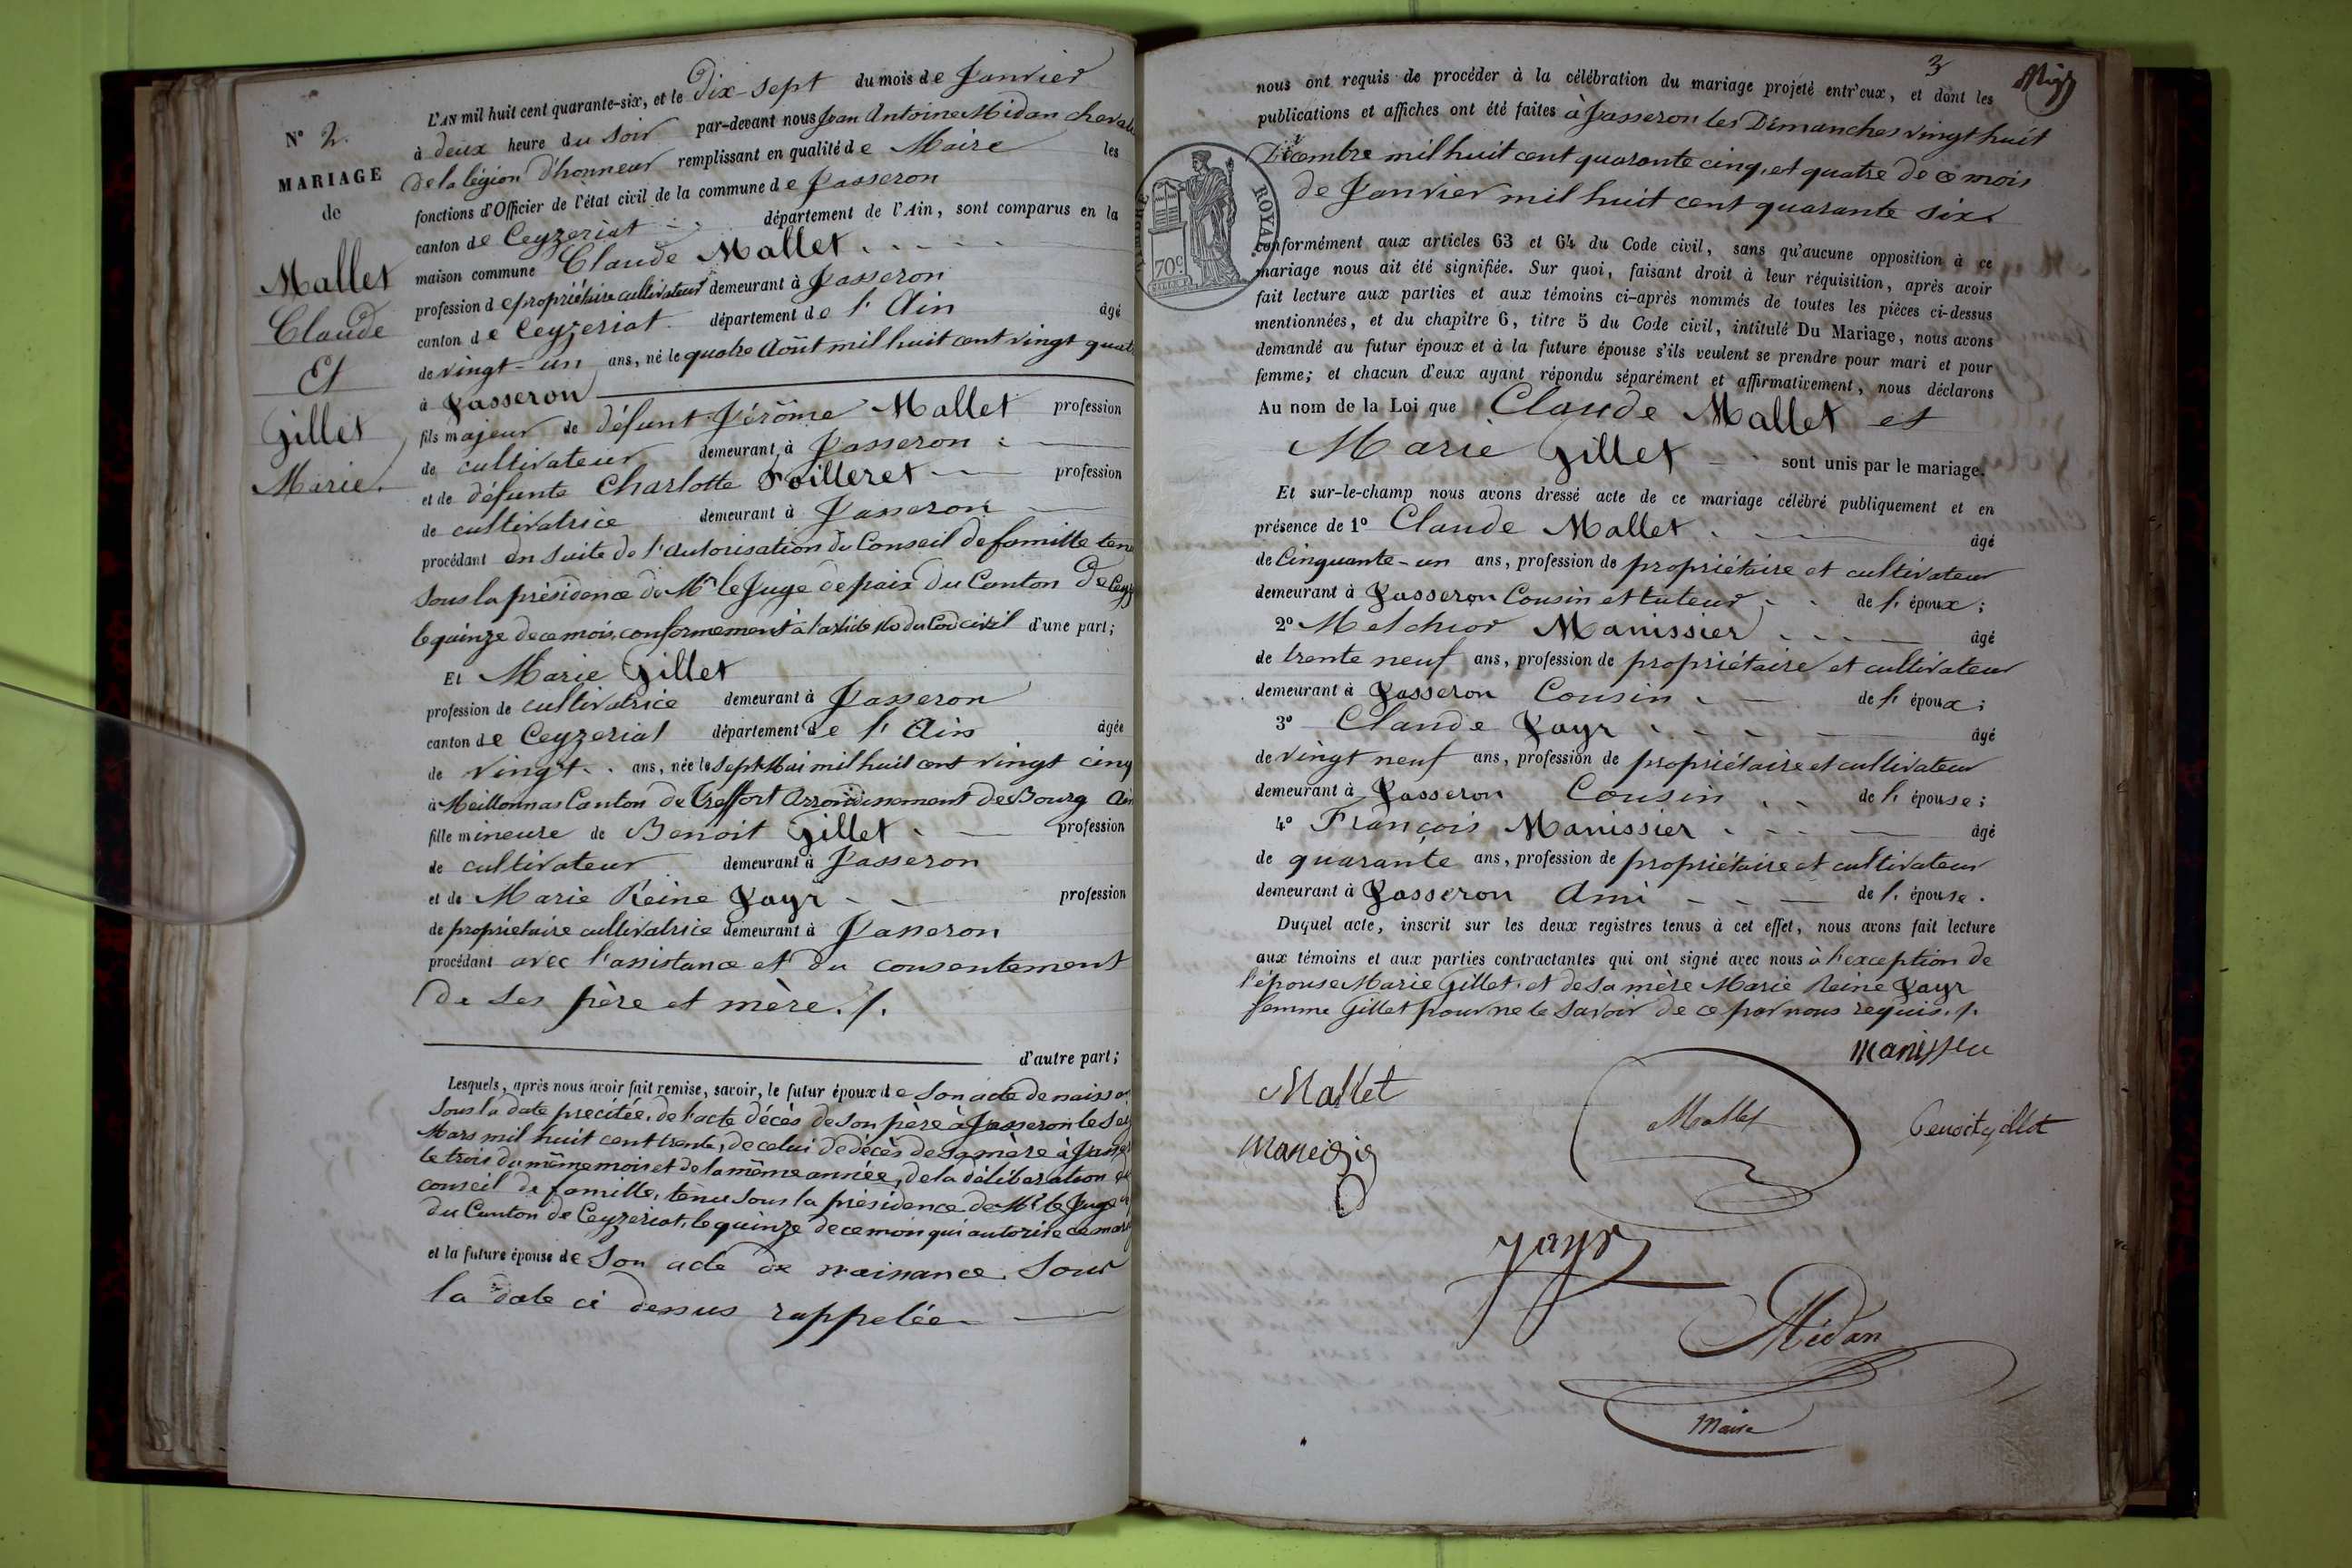 N° 2.
MARIAGE
de
Mallet
Claude
Et
Gillet
Marie.
L'AN mil huit cent quarante-six, et le Dix-sept du mois de Janvier
à deux heure du soir par-devant nous Jean Antoine Midan cheval
de la légion d'honneur remplissant en qualité de Maire les
fonctions d'Officier de l'état civil de la commune de Jasseron
canton de Ceyzeriat département de l'Ain, sont comparus en la
maison commune Claude Mallet
profession de propriétaire cultivateur demeurant à Jasseron
canton de Ceyzeriat département de l'Ain âgé
de vingt-un ans, né le quatre Août mil huit cent vingt quat
à Jasseron
fils majeur de défunt Jérôme Mallet profession
de cultivateur demeurant à Jasseron
et de défunte Charlotte Foilleret profession
de cultivatrice demeurant à Jasseron
procédant en suite de l'autorisation du Conseil de famille ten
sous la présidence de Mr le Juge de paix du Canton de Ceyz
le quinze de ce mois, conformement à l'article 160 du Code civil d'une part;
Et Marie Gillet
profession de cultivatrice demeurant à Jasseron
canton de Ceyzeriat département de l'Ain âgée
de vingt ans, née le sept Mai mil huit cent vingt cinq
à Meillonnas Canton de Treffort Arrondissement de Bourg Ain
fille mineure de Benoit Gillet profession
de cultivateur demeurant à Jasseron
et de Marie Reine Jayr profession
de propriétaire cultivatrice demeurant à Jasseron
procédant avec l'assistance et du consentement
de ses père et mère./.
d'autre part;
Lesquels, après nous avoir fait remise, savoir, le futur époux de son acte de naissan
sous la date precitée, de l'acte décès de son père à Jasseron le
Mars mil huit cent trente, de celui de décès de sa mère à Jasser
le trois du même mois et de la même année, de la délibération du
conseil de famille, tenu sous la présidence de Mr le Juge
du Canton de Ceyzeriat, le quinze de ce mois qui autorise ce mari
et la future épouse de son acte de naissance sous
la date ci dessus rappelée
3
nous ont requis de procéder à la célébration du mariage projeté entr'eux, et dont les
publications et affiches ont été faites à Jasseron les Dimanches vingt huit
Décembre mil huit cent quarante cinq, et quatre de ce mois
de Janvier mil huit cent quarante six.
TIMBRE ROYAL.
70c.
conformément aux articles 63 et 64 du Code civil, sans qu'aucune opposition à ce
mariage nous ait été signifiée. Sur quoi, faisant droit à leur réquisition, après avoir
fait lecture aux parties et aux témoins ci-après nommés de toutes les pièces ci-dessus
mentionnées, et du chapitre 6, titre 5 du Code civil, intitulé Du Mariage, nous avons
demandé au futur époux et à la future épouse s'ils veulent se prendre pour mari et pour
femme; et chacun d'eux ayant répondu séparément et affirmativement, nous déclarons
Au nom de la Loi que Claude Mallet et
Marie Gillet sont unis par le mariage.
Et sur-le-champ nous avons dressé acte de ce mariage célébré publiquement et en
présence de 1° Claude Mallet âgé
de Cinquante-un ans, profession de propriétaire et cultivateur
demeurant à Jasseron Cousin et tuteur de l'époux;
2° Melchior Manissier âgé
de trente neuf ans, profession de propriétaire et cultivateur
demeurant à Jasseron Cousin de l'époux;
3° Claude Jayr âgé
de vingt neuf ans, profession de propriétaire et cultivateur
demeurant à Jasseron Cousin de l'épouse;
4° François Manissier âgé
de quarante ans, profession de propriétaire et cultivateur
demeurant à Jasseron Ami de l'épouse.
Duquel acte, inscrit sur les deux registres tenus à cet effet, nous avons fait lecture
aux témoins et aux parties contractantes qui ont signé avec nous à l'exception de
l'épouse Marie Gillet et de sa mère Marie Reine Jayr
femme Gillet pour ne le savoir de ce par nous requis./.
Manissier
Mallet
Mallet
Benoit gillet
jayr
Midan
Maire